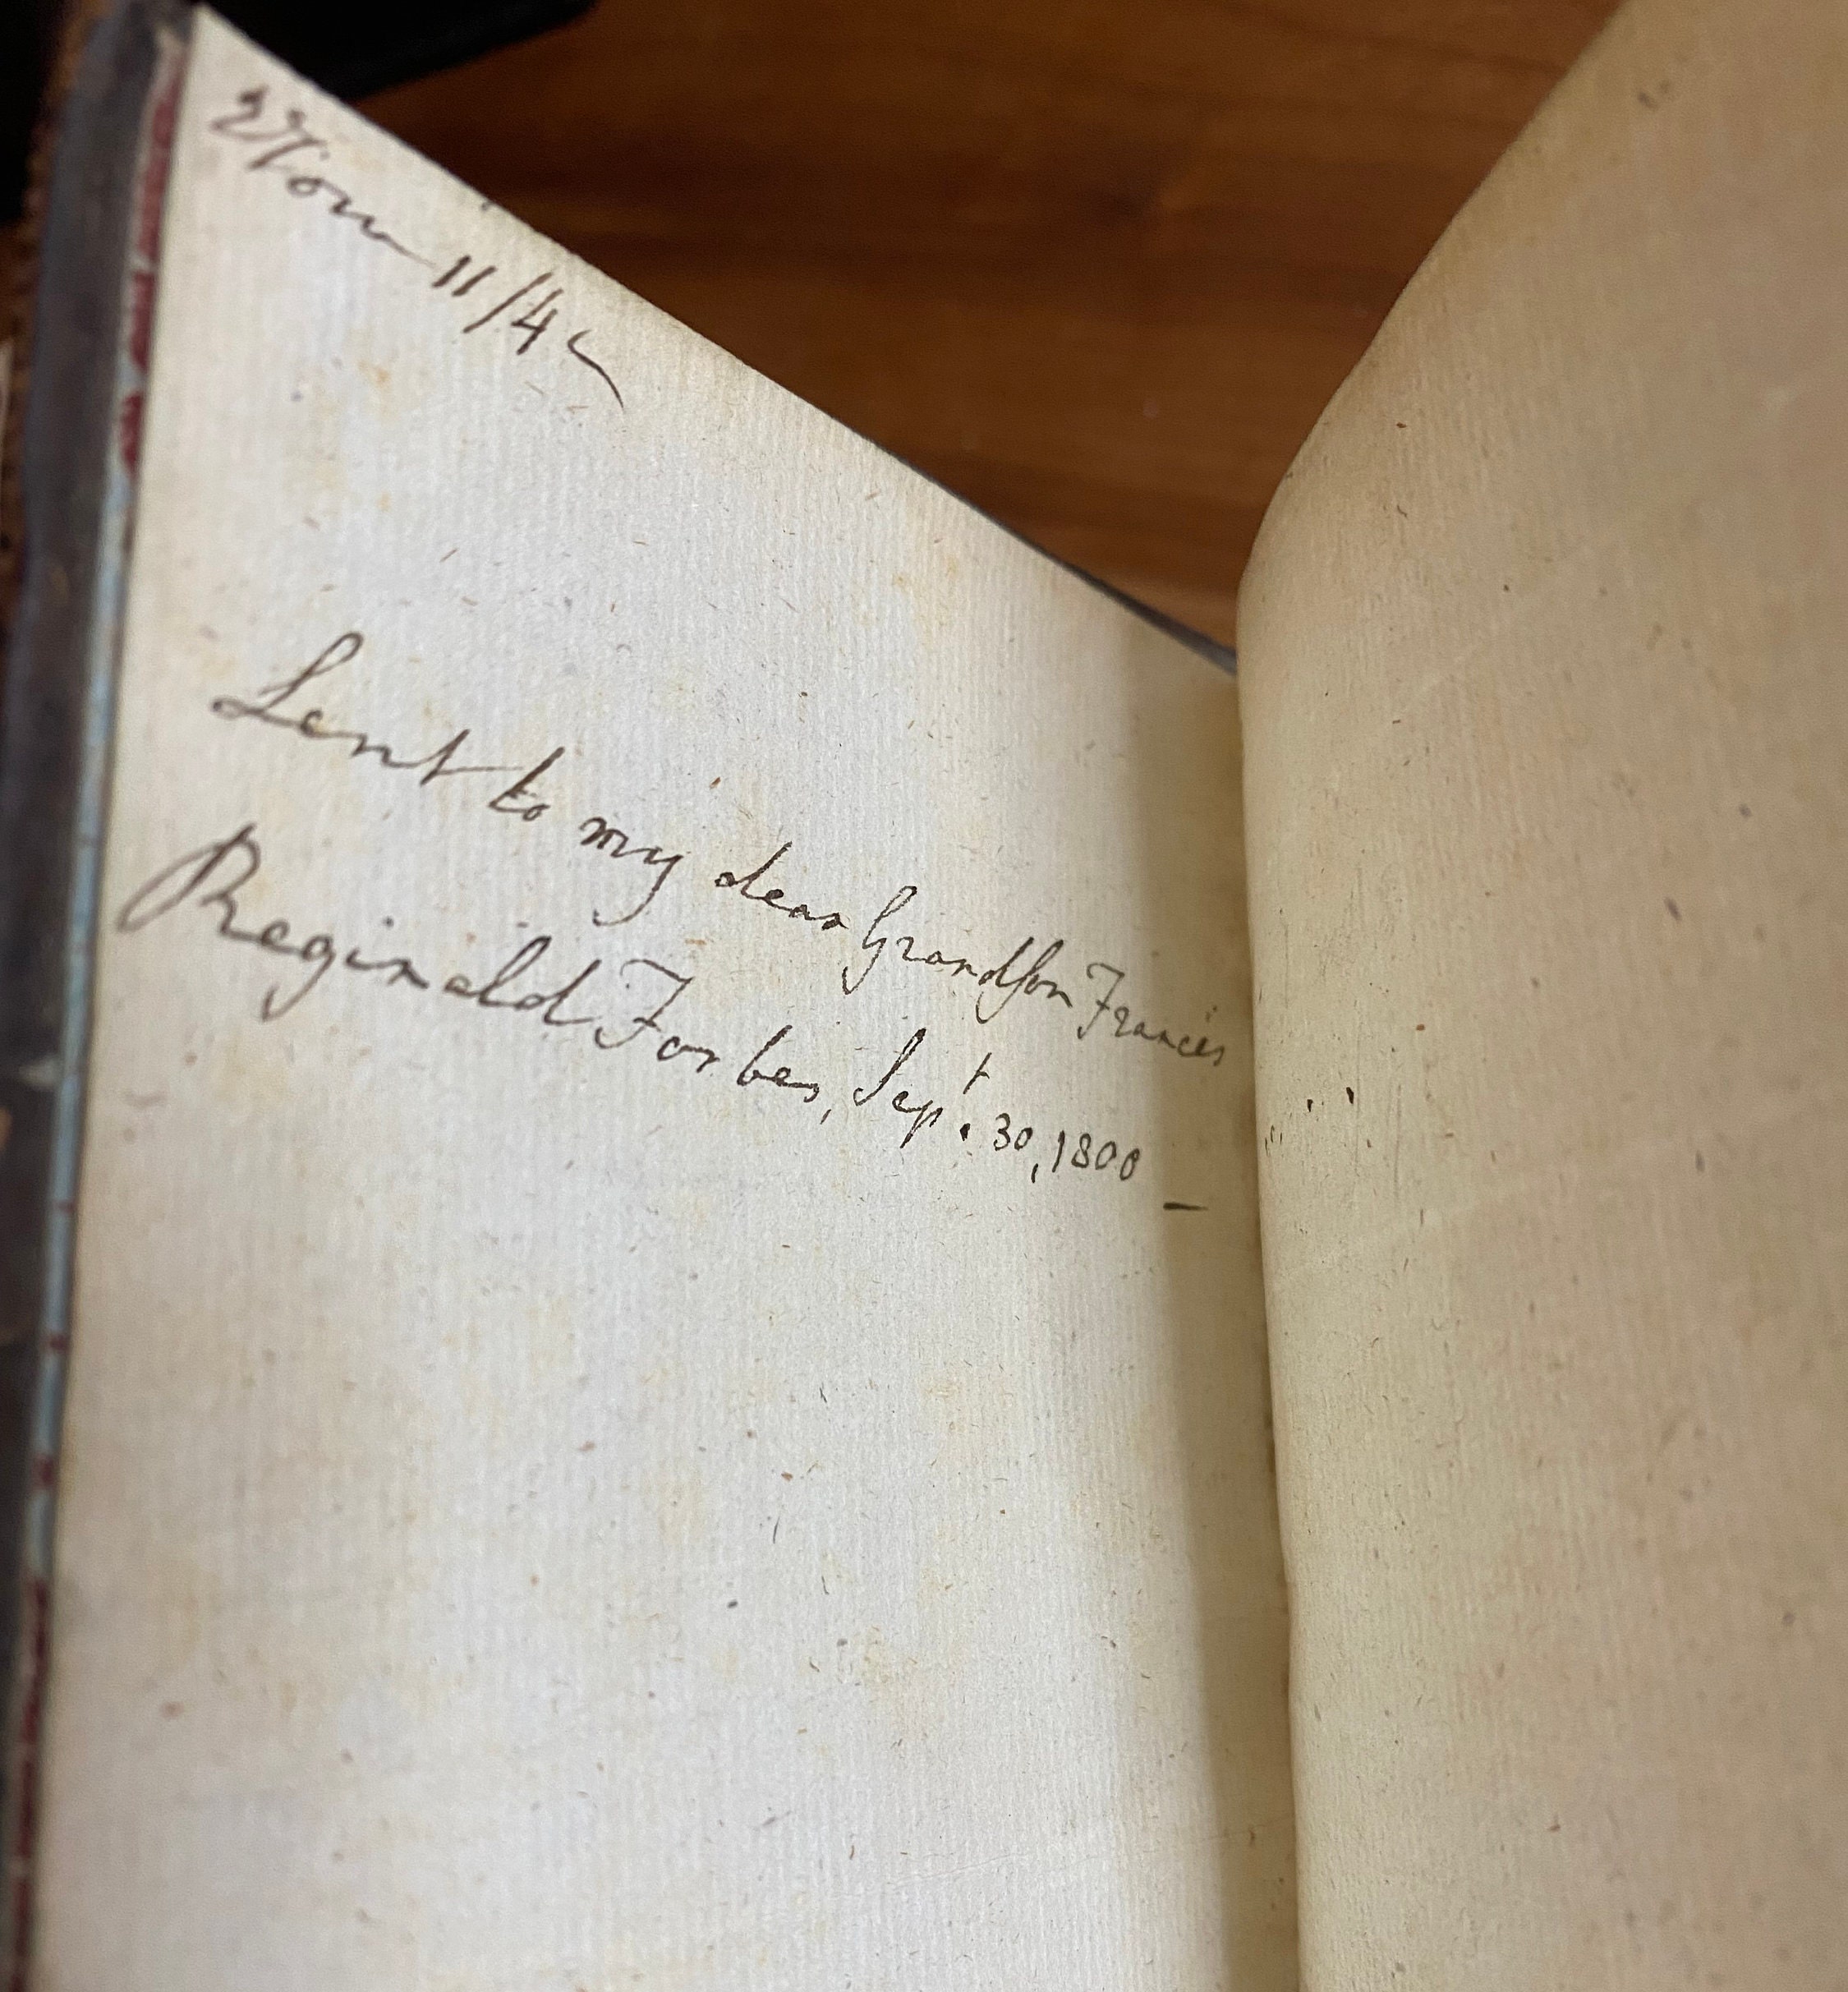 11/4
Lent to my dear Grandson Francis
Reginald Forbes, Sept. 30, 1800 —